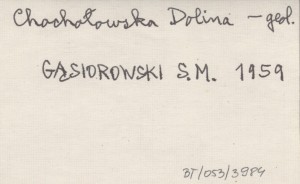 Chochołowska Dolina – geol.
GĄSIOROWSKI S.M. 1959
BT/053/3984